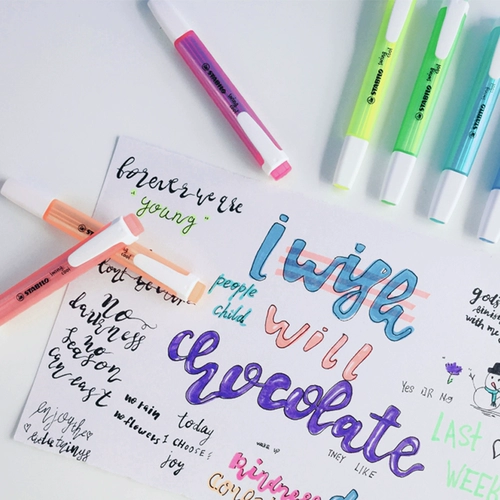 STABILO swing cool
STABILO swing cool
STABILO swing cool
STABILO
STABILO
forever we are
"young"
i wish
people
child
will
chocolate
no
darkness
no
season
can east
enjoy the
little things
no rain
no flowers
today
I CHOOSE
joy
wake up
THEY LIKE
Yes OR No
with me
LAST
WEEK
kindness